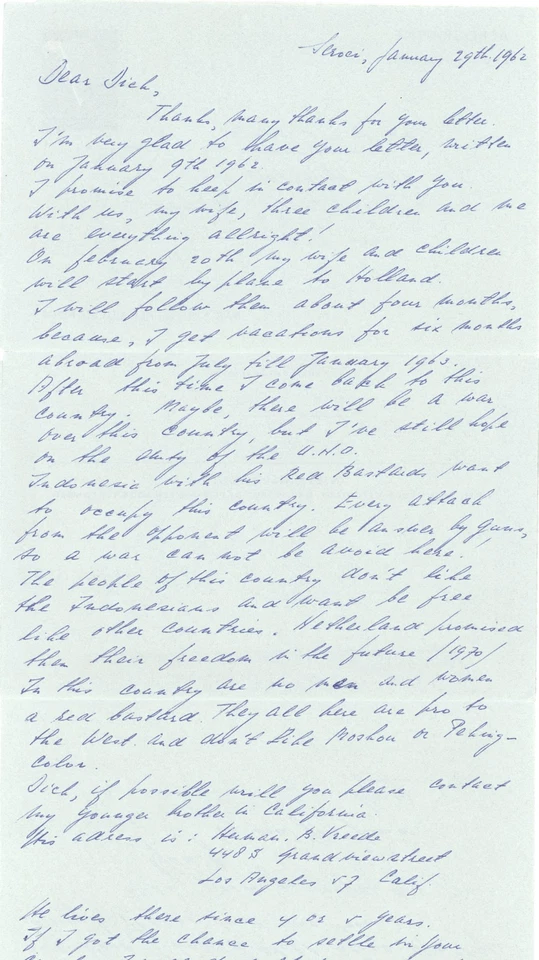 Seroei, January 29th. 1962
Dear Dick,
Thanks, many thanks for your letter.
I'm very glad to have your letter, written
on January 9th 1962.
I promise to keep in contact with you.
With us, my wife, three children and me
are everything allright!
On february 20th my wife and children
will start by plane to Holland.
I will follow them about four months,
because, I get vacations for six months
abroad from July till January 1963.
After this time I come back to this
country. Maybe, there will be a war
over this country, but I've still hope
on the duty of the U.N.O.
Indonesia with his Red Bastards want
to occupy this country. Every attack
from the opponent will be answer by guns,
so a war can not be avoid here.
The people of this country don't like
the Indonesians and want be free
like other countries. Netherland promised
them their freedom in the future /1970/
In this country are no men and women
a red bastard. They all here are pro to
the West and don't like Moskou or Peking-
color.
Dick, if possible will you please contact
my younger brother in California.
His adress is: Herman. B. Vreede
4485 Grandviewstreet
Los Angeles 57 Calif.
He lives there since 4 or 5 years.
If I got the chance to settle in your